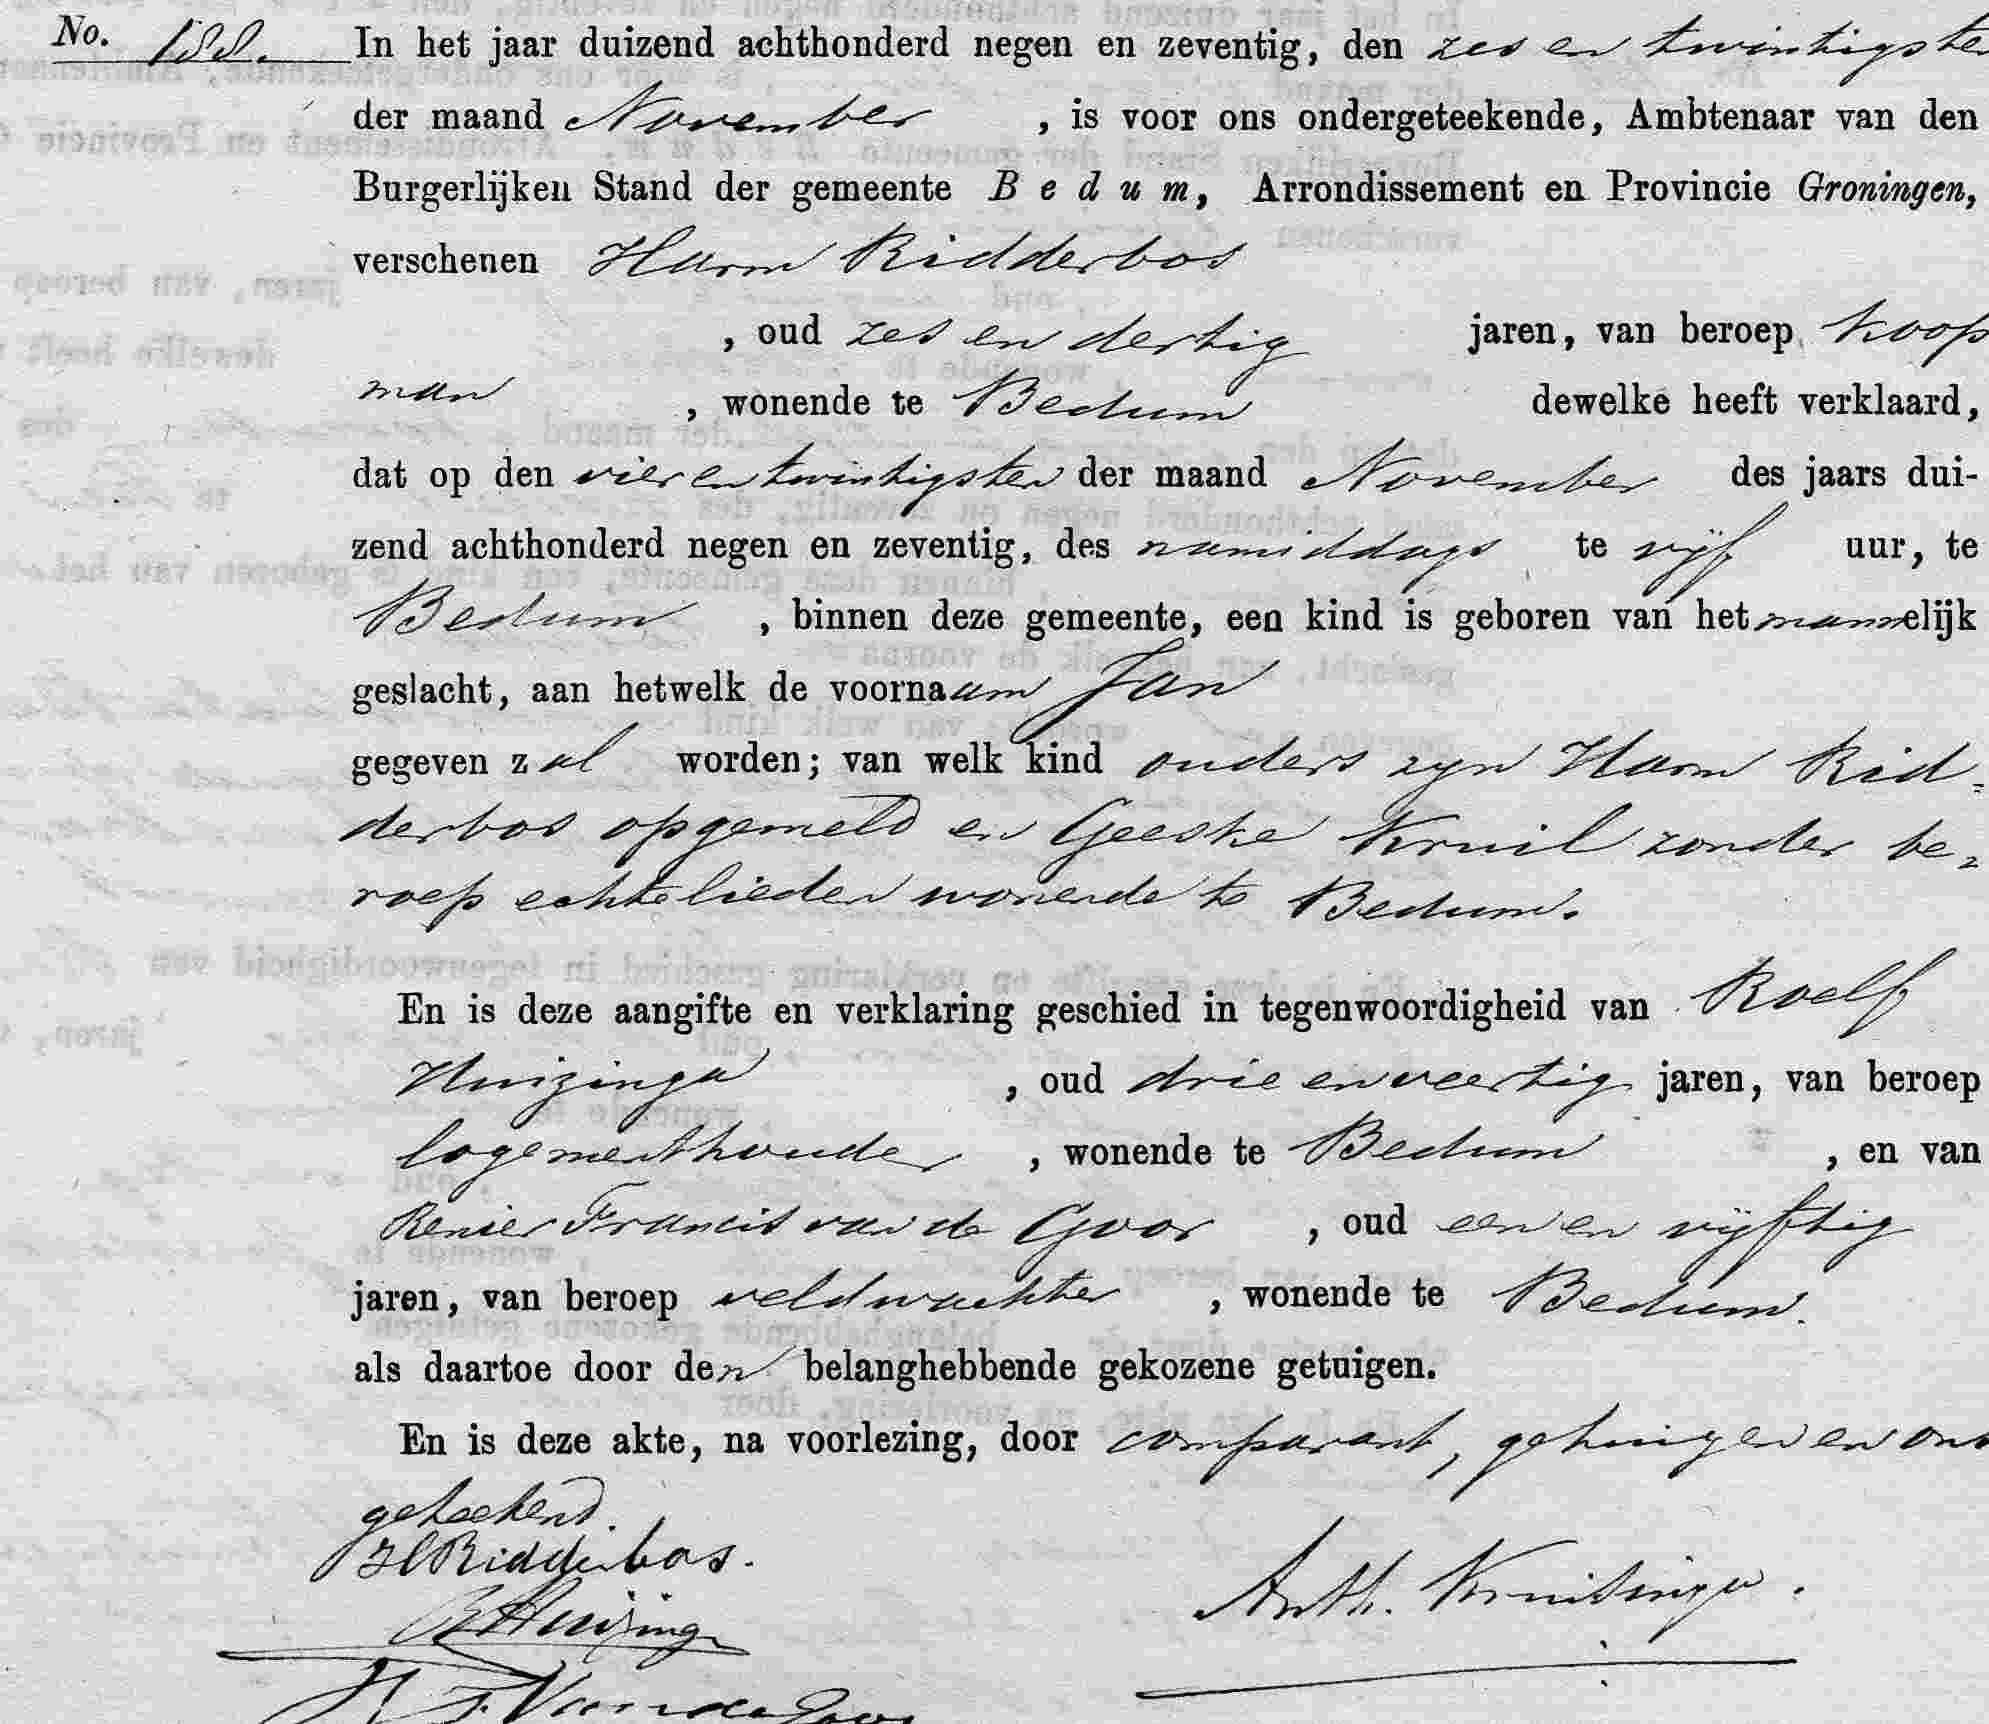 No. 188. In het jaar duizend achthonderd negen en zeventig, den zes en twintigsten
der maand November , is voor ons ondergeteekende, Ambtenaar van den
Burgerlijken Stand der gemeente Bedum, Arrondissement en Provincie Groningen,
verschenen Harm Ridderbos
, oud zes en dertig jaren, van beroep koop
man , wonende te Bedum dewelke heeft verklaard,
dat op den vier en twintigsten der maand November des jaars dui-
zend achthonderd negen en zeventig, des namiddags te vijf uur, te
Bedum , binnen deze gemeente, een kind is geboren van het mannelijk
geslacht, aan hetwelk de voornaam Jan
gegeven zal worden; van welk kind ouders zyn Harm Rid-
derbos opgemeld en Geeske Kruil zonder be-
roep echtelieden wonende te Bedum.
En is deze aangifte en verklaring geschied in tegenwoordigheid van Roelf
Huizinga , oud drie en veertig jaren, van beroep
logementhouder , wonende te Bedum , en van
Renier Francis van de Goor , oud een en vijftig
jaren, van beroep veldwachter , wonende te Bedum.
als daartoe door den belanghebbende gekozene getuigen.
En is deze akte, na voorlezing, door comparant, getuigen en ons
geteekend.
H Ridderbos.
R Huizinga
Anth. Kruisinga.
R. F. Van de Goor